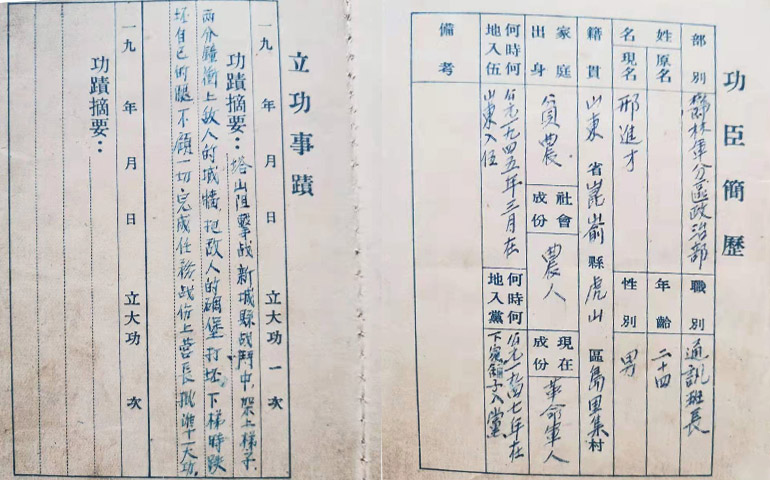 功臣簡歷
部別 鬱林軍分區政治部 職別 通訊班長
姓名 原名 年齡 二十四
現名 邢進才 性別 男
籍貫 山東省崑崳縣虎山區島里集村
家庭出身 貧農 社會成份 農人 現在成份 革命軍人
何時何地入伍 公元一九四五年三月在山東入伍 何時何地入黨 公元一九四七年在下窪舖子入黨
備考
立功事蹟
一九 年 月 日 立大功一次
功蹟摘要：塔山阻擊战新城縣战鬥中，架上梯子
两分鐘衝上敌人的城牆，把敌人的碉堡打坯，下梯時跌
坯自己的腿不顧一切完成任務战份上营長批准十一大功
一九 年 月 日 立大功 次
功蹟摘要：